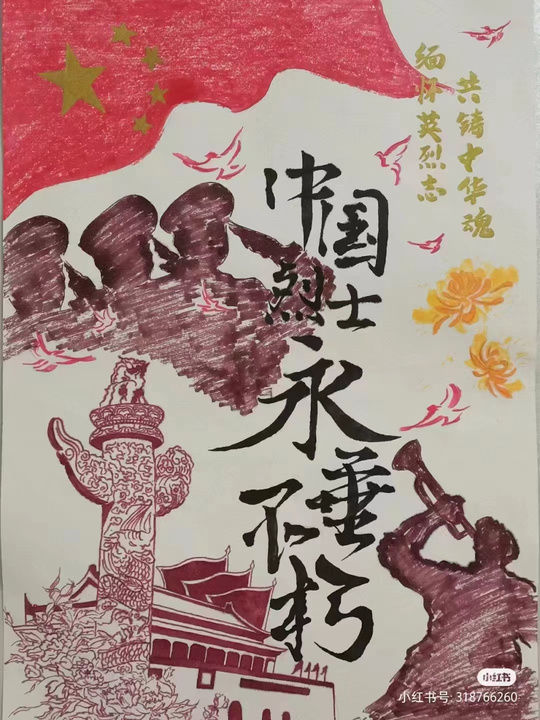 缅怀英烈志
共铸中华魂
中国
烈士
永垂
不朽
小红书
小红书号: 318766260